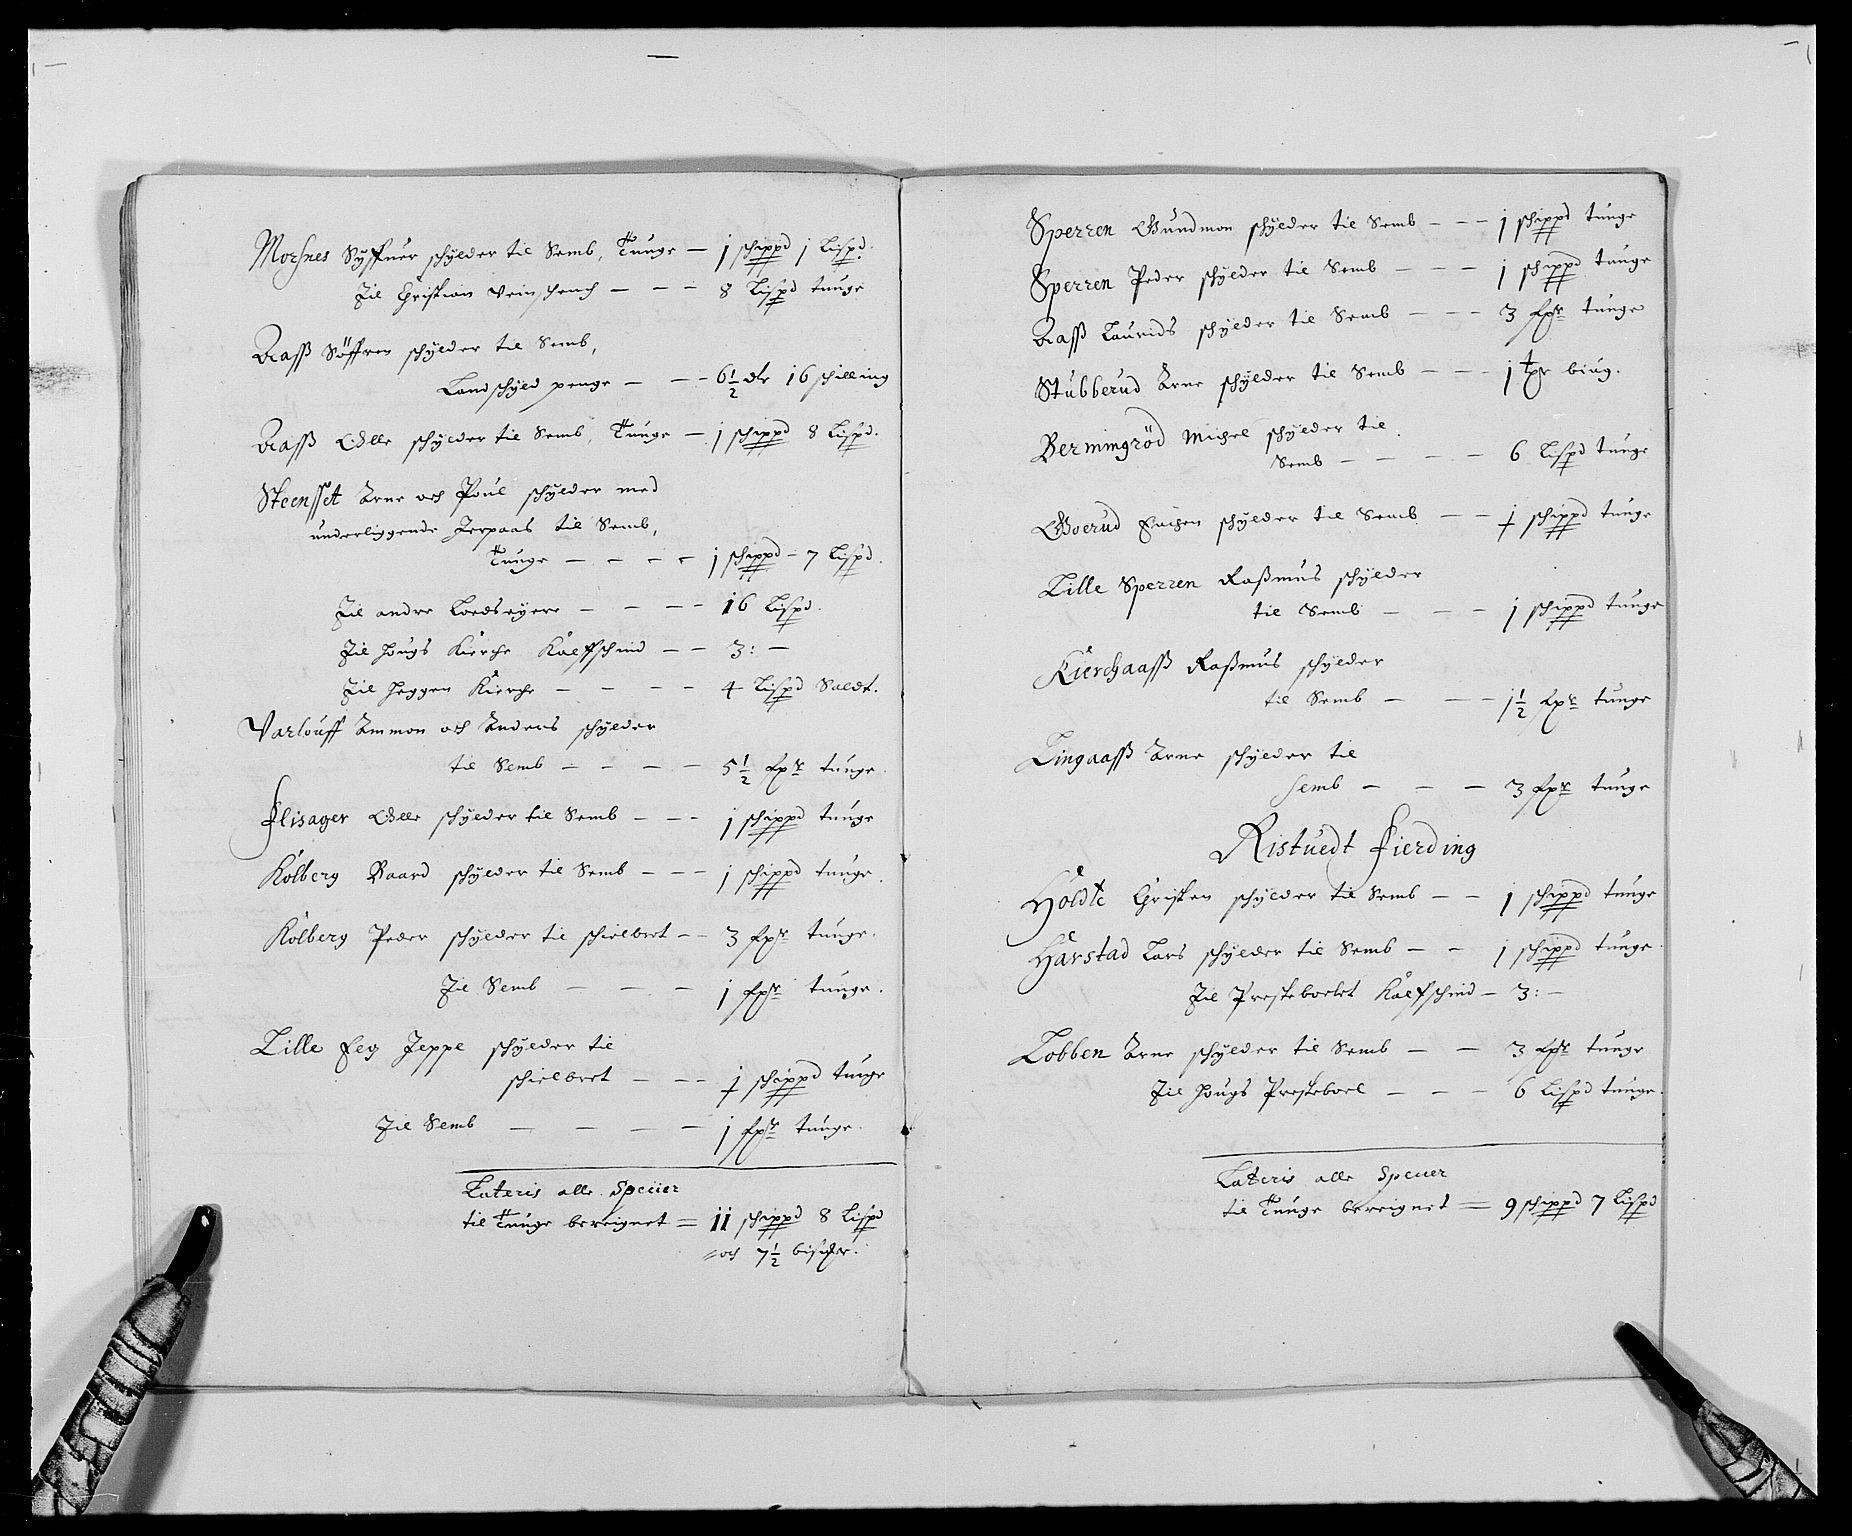 Morsnes Syffuer schÿlder til Semb, Tunge — 1 schippd 1 Lispd.
Til Christian Veinschench — — — 8 Lispd tunge
Aass Söffren schÿlder til Semb,
Landschÿld penge — — — 6½ dlr 16 schilling
Aass Olle schÿlder til Semb, Tunge — 1 schippd 8 Lispd.
Steensset Arne och Poul schÿlder med
underliggende Jerpaas til Semb,
Tunge — — — — 1 schippd — 7 Lispd.
Til andre Loedseyere — — — — 16 Lispd.
Til Hougs Kierche Kalfschind — — 3: —
Til Heggen Kierche — — — — 4 Lispd Saldt.
Varlouff Ammon och Anders schÿlder
til Semb — — — — 5½ fpr tunge.
Flisager Olle schÿlder til Semb — — — 1 schippd tunge
Kolberg Baard schÿlder til Semb — — — 1 schippd tunge.
Kolberg Peder schÿlder til schielbret — — 3 fpr tunge.
Til Semb — — — 1 fpr tunge.
Lille Eeg Jeppe schÿlder til
schielbret — — — ½ schippd tunge
Til Semb — — — — 1 fpr tunge.
Lateris alle Speuer
til Tunge bereignet = 11 schippd 8 Lispd
och 7½ bismer.
Sperren Gudmon schÿlder til Semb — — — 1 schippd tunge
Sperren Peder schÿlder til Semb — — — 1 schippd tunge
Aass Laurids schÿlder til Semb — — — 3 fpr tunge
Stubberud Arne schÿlder til Semb — — — 1 tpr biug.
Bermingröd Michel schÿlder til
Semb — — — — 6 Lispd tunge
Goerud schÿlder til Semb — — ½ schippd tunge
Lille Sperren Rassmus schÿlder
til Semb — — — 1 schippd tunge
Kierchaass Rassmus schÿlder
til Semb — — — 1½ fpr tunge
Lingaass Arne schÿlder til
Semb — — — 3 fpr tunge
Ristuedt Fierding
Holdte Christen schÿlder til Semb — — 1 schippd tunge
Harstad Lars schÿlder til Semb — — 1 schippd tunge.
Til Presteboelet Kalfschind — 3: —
Lobben Arne schÿlder til Semb — — 3 fpr tunge
Til Hougs Presteboel — — — 6 Lispd tunge.
Lateris alle Speuer
til Tunge bereignet = 9 schippd 7 Lispd